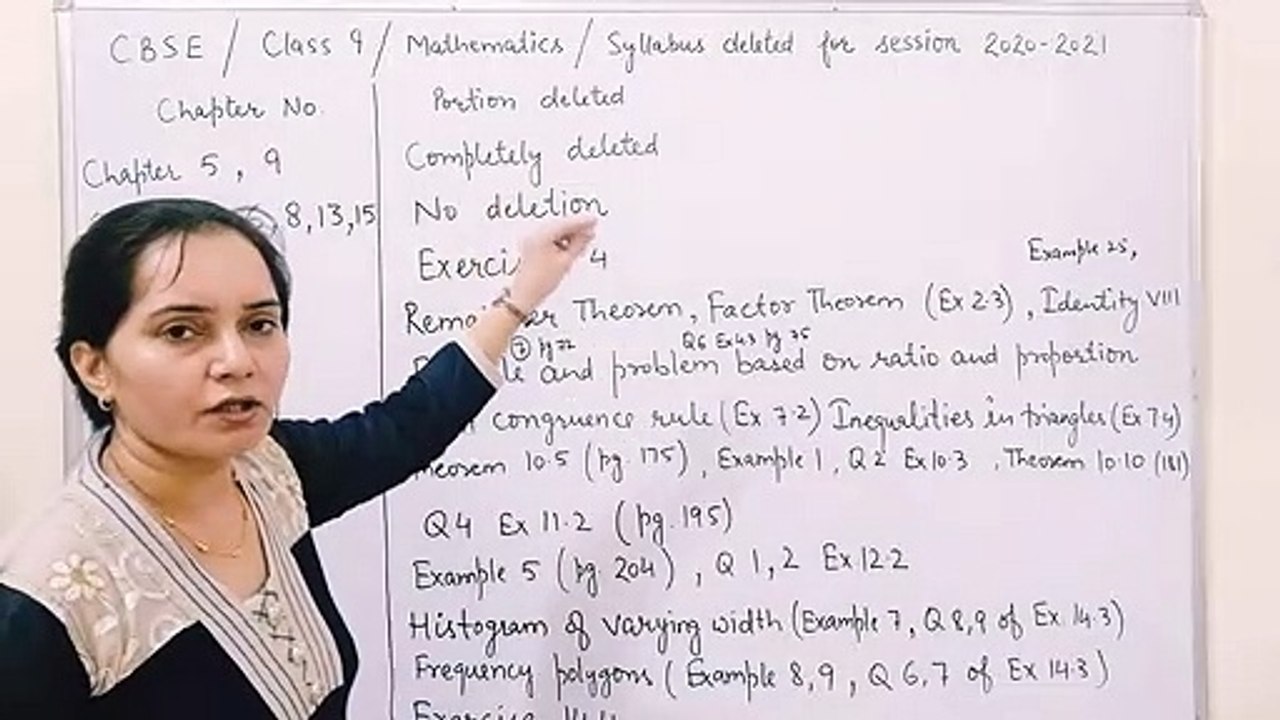 CBSE / Class 9 / Mathematics / Syllabus deleted for session 2020-2021
Chapter No. Portion deleted
Chapter 5, 9 Completely deleted
8,13,15 No deletion
4
Example 25,
Theorem, Factor Theorem (Ex 2.3), Identity VIII
7 pg 72 Q6 Ex 4.3 pg 75
and problem based on ratio and proportion
congruence rule (Ex 7.2) Inequalities in triangles (Ex 7.4)
Theorem 10.5 (pg. 175), Example 1, Q 2 Ex 10.3, Theorem 10.10 (181)
Q4 Ex 11.2 (pg. 195)
Example 5 (pg. 204), Q 1,2 Ex 12.2
Histogram of varying width (Example 7, Q 8,9 of Ex. 14.3)
Frequency polygons (Example 8,9, Q 6,7 of Ex 14.3)
Exercise 14.4